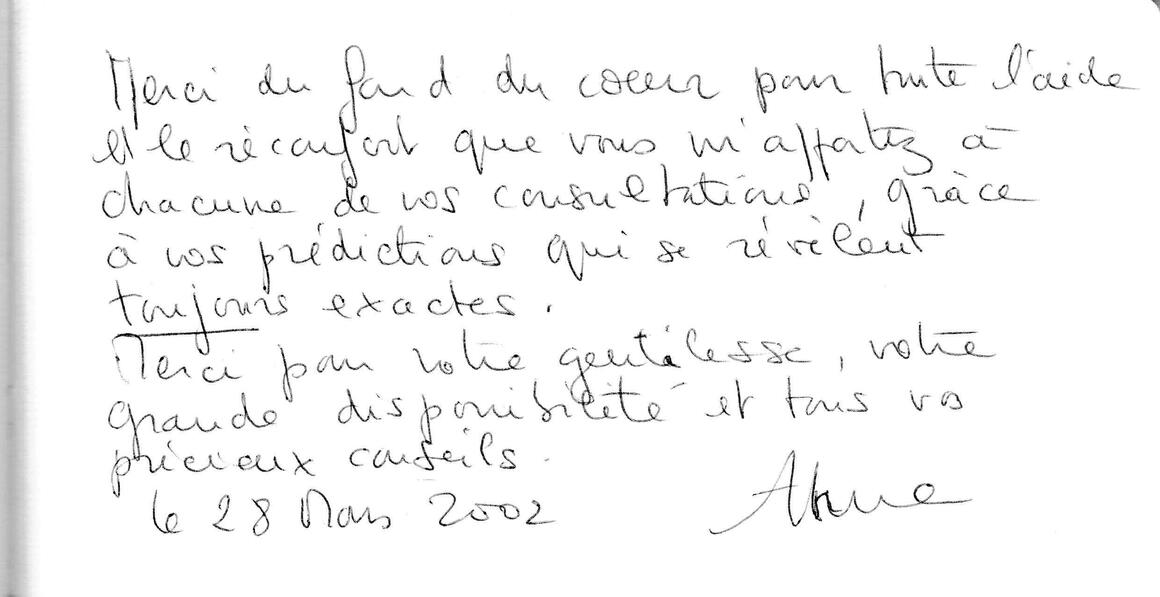 Merci du fond du coeur pour toute l'aide
et le réconfort que vous m'apportez à
chacune de vos consultations, grâce
à vos prédictions qui se révèlent
toujours exactes.
Merci pour votre gentillesse, votre
grande disponibilité et tous vos
précieux conseils.
le 28 Mars 2002
Anne